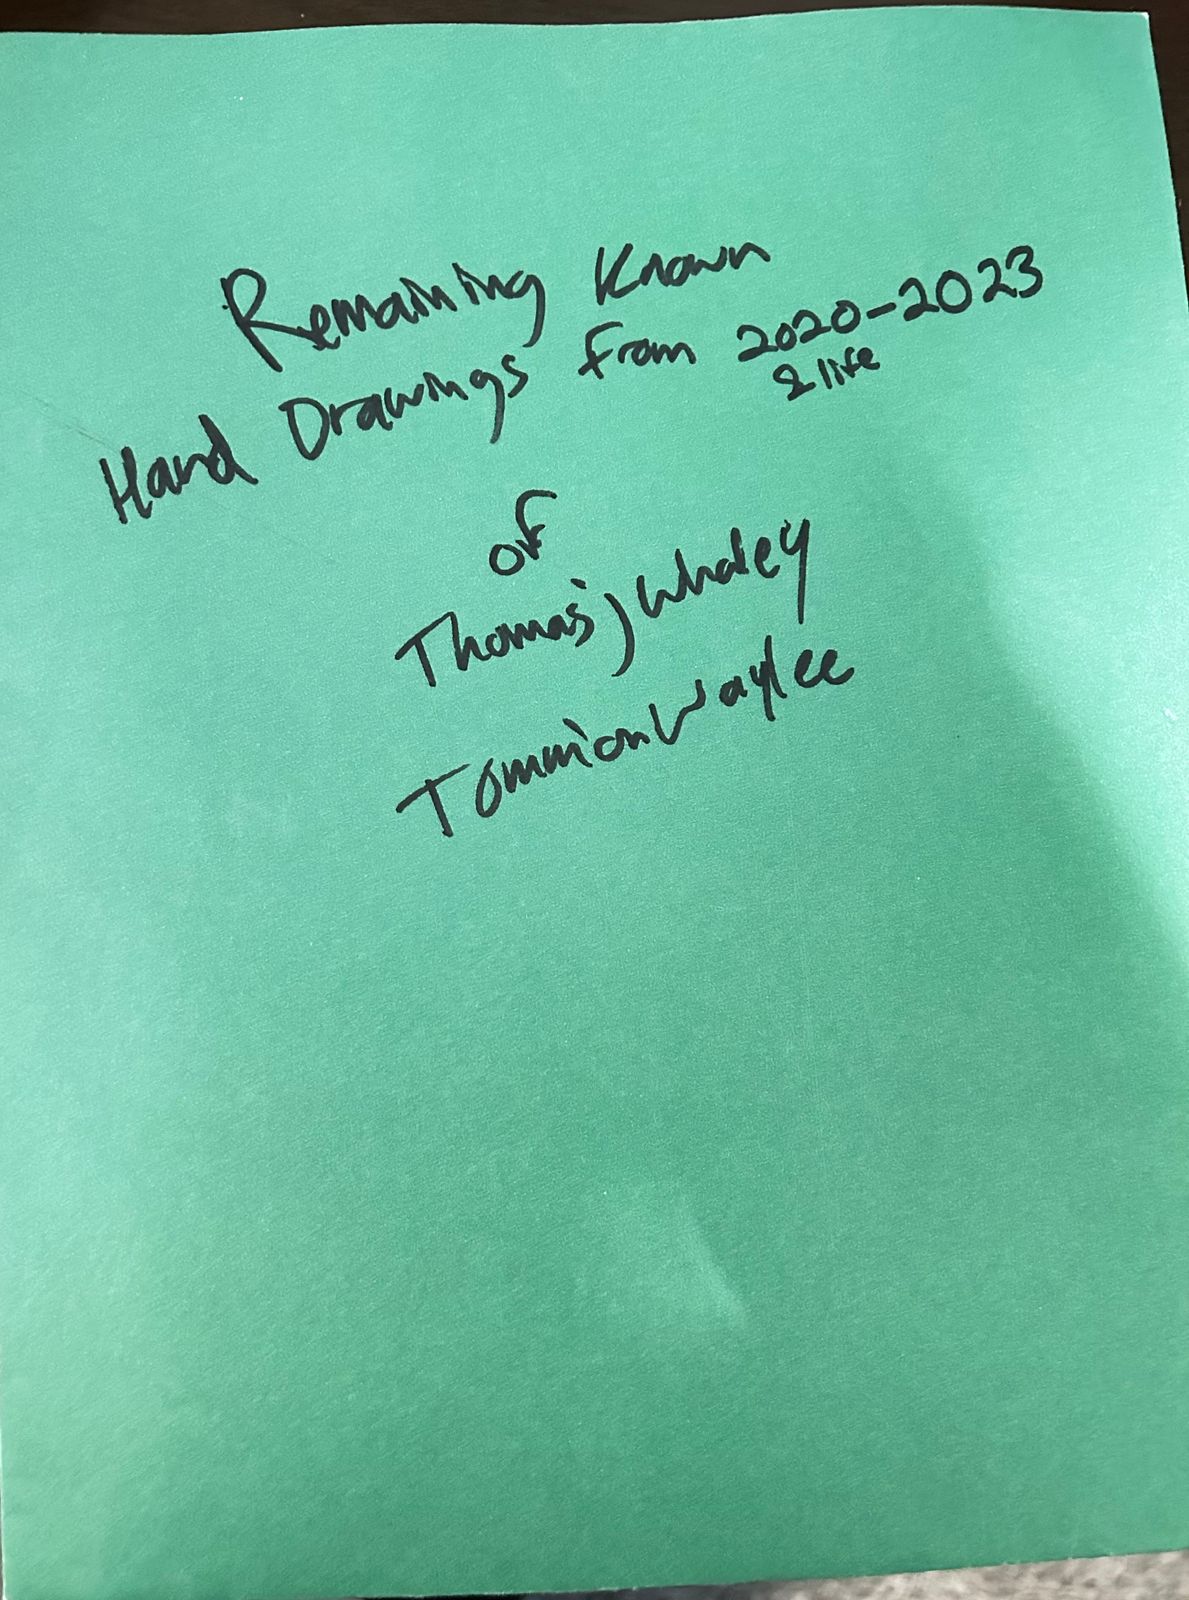 Remaining Known
Hand Drawings from 2020-2023
& life
of
Thomas j Whaley
Tommion Waylee